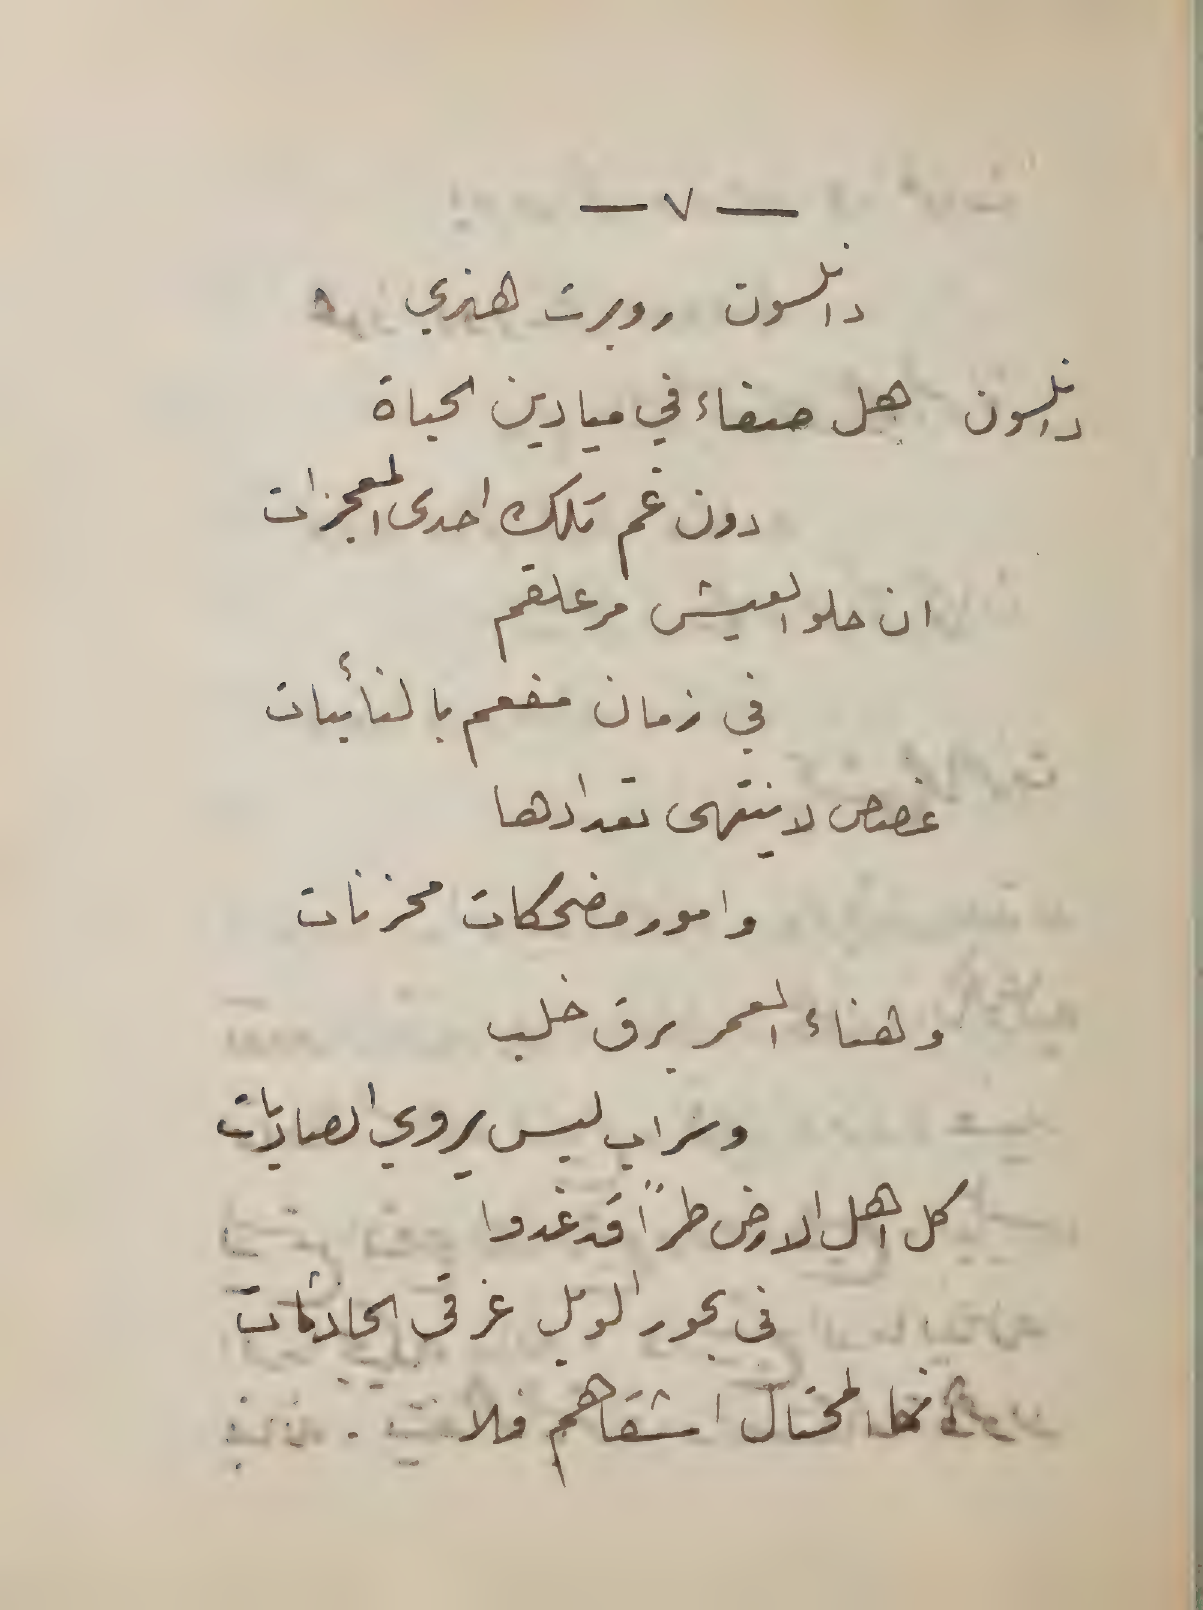 — ٧ —
دانلسون روبرت هنري
دانلسون هل صفاء في ميادين الحياة
دون غم تلك احدى المعجزات
ان حلو العيش مر علقم
في زمان مفعم بالنائبات
غصص لا ينتهى تعدادها
وامور مضحكات محزنات
وهناء العمر برق خلب
وسراب ليس يروي الصاديات
كل اهل الارض طراً قد غدوا
فى بحور الويل غرقى الحادثات
المحتال اشقاهم فلا